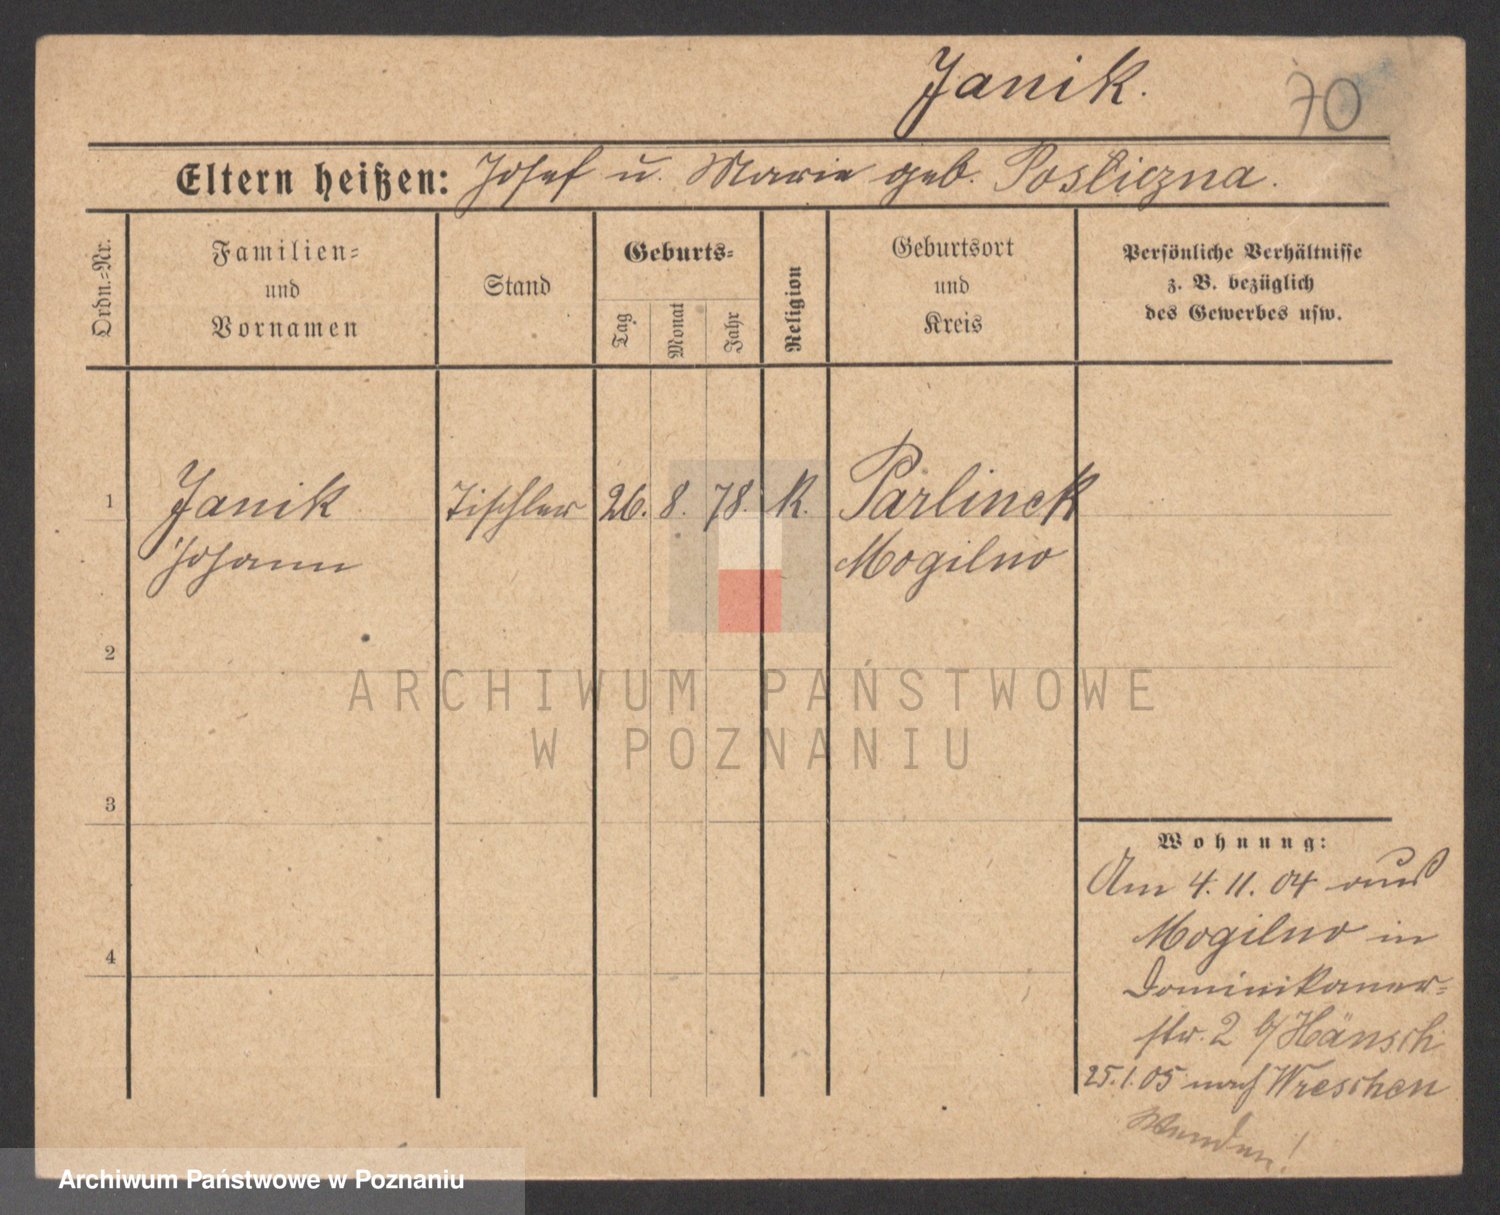 Janik.
70
Eltern heißen: Josef u. Marie geb. Posliczna.
Ordn.=Nr.
Familien=
und
Vornamen
Stand
Geburts=
Tag
Monat
Jahr
Religion
Geburtsort
und
Kreis
Persönliche Verhältnisse
z. B. bezüglich
des Gewerbes usw.
1 Janik Tischler 26. 8. 78. K. Parlinek
Johann Mogilno
2
ARCHIWUM PAŃSTWOWE
W POZNANIU
3
Wohnung:
Am 4. 11. 04 aus
Mogilno in
4
Dominikaner=
str. 2 b/Hänsch
25.1.05 nach Wreschen
Wenden!
Archiwum Państwowe w Poznaniu